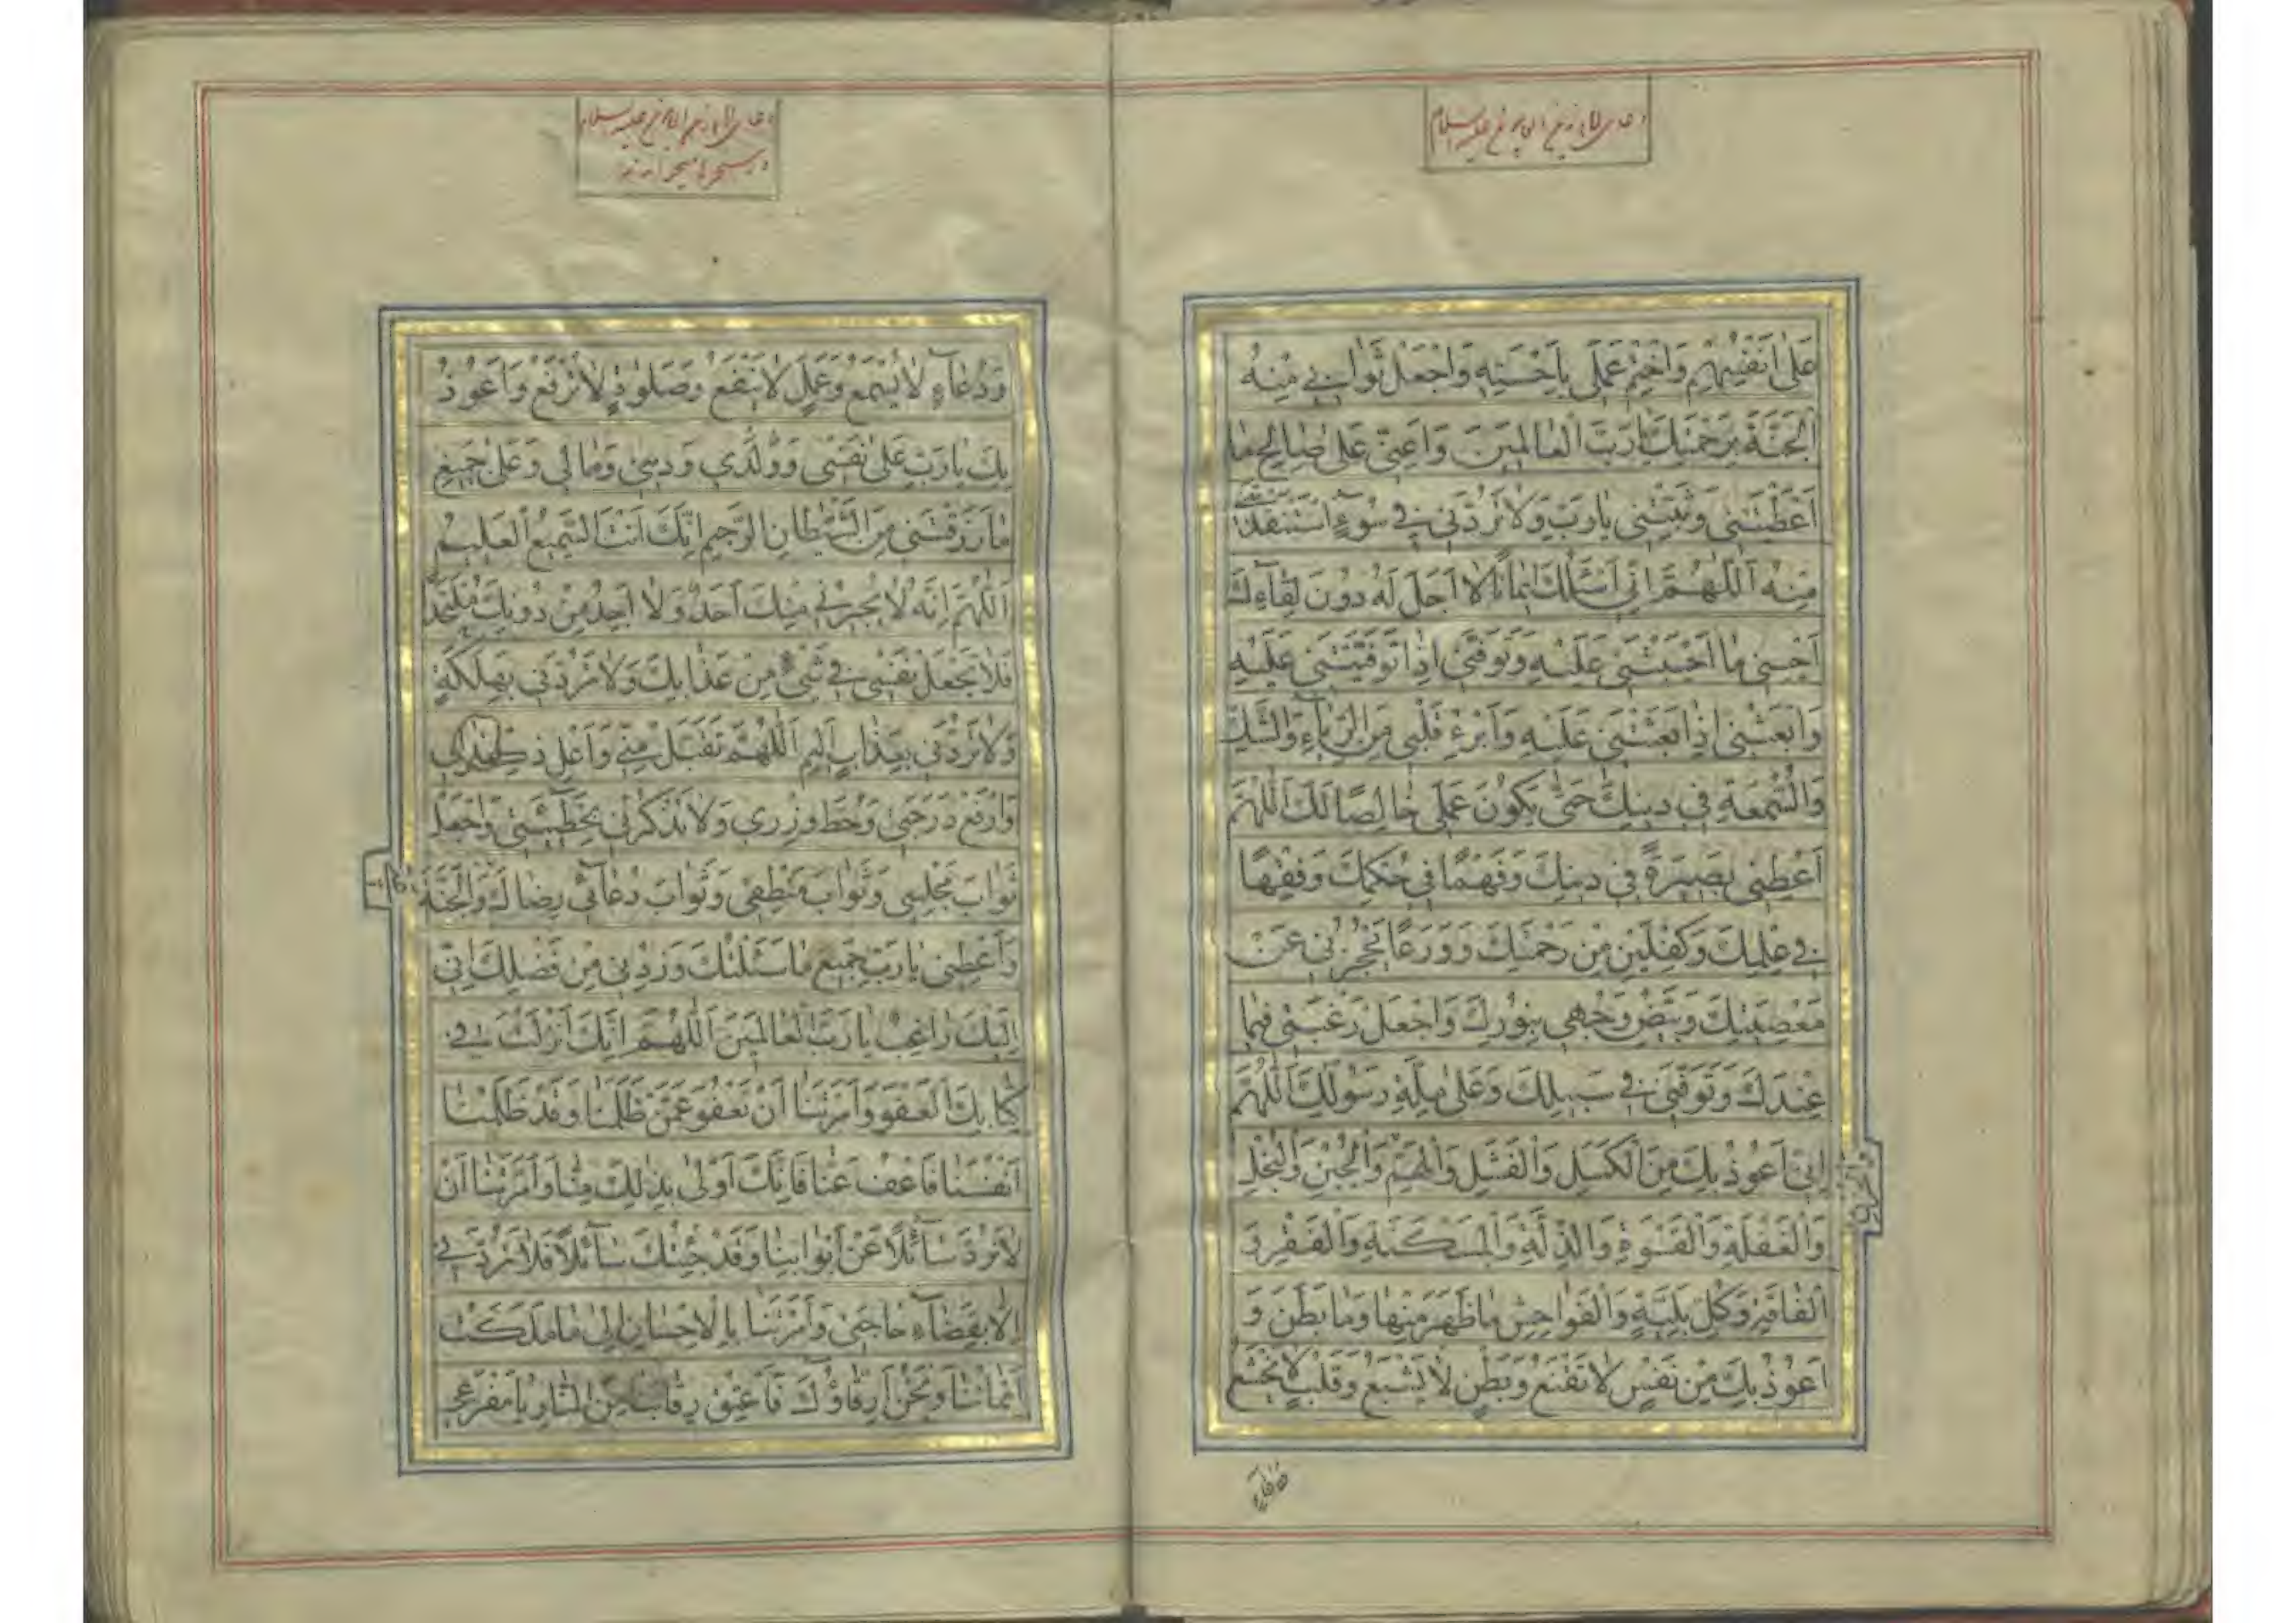 عَلىٰ اَنْفُسِهِمْ وَاخْتِمْ عَمَلى بِاَحْسَنِهِ وَاجْعَلْ ثَوابى مِنْهُ
الْجَنَّةَ بِرَحْمَتِكَ يٰا رَبَّ الْعٰالَمينَ وَاَعِنّى عَلىٰ صٰالِحِ مٰا
اَعْطَيْتَنى وَثَبِّتْنى يٰارَبِّ وَلاٰتَرُدَّنى فى سُوۤءٍ اسْتَنْقَذْتَنى
مِنْهُ اَللّٰهُمَّ اِنّى اَسْئَلُكَ ايمٰانًا لاٰ اَجَلَ لَهُ دُونَ لِقٰاۤءِكَ
اَحْينى مٰا اَحْيَيْتَنى عَلَيْهِ وَتَوَفَّنى اِذٰا تَوَفَّيْتَنى عَلَيْهِ
وَابْعَثْنى اِذٰا بَعَثْتَنى عَلَيْهِ وَاَبْرِءْ قَلْبى مِنَ الرِّيٰاۤءِ وَالشَّكِّ
وَالسُّمْعَةِ فى دينِكَ حَتّىٰ يَكُونَ عَمَلى خٰالِصًا لَكَ اَللّٰهُمَّ
اَعْطِنى بَصيرَةً فى دينِكَ وَفَهْمًا فى حُكْمِكَ وَفِقْهًا
فى عِلْمِكَ وَكِفْلَيْنِ مِنْ رَحْمَتِكَ وَوَرَعًا يَحْجُزُنى عَنْ
مَعْصِيَتِكَ وَبَيِّضْ وَجْهى بِنُورِكَ وَاجْعَلْ رَغْبَتى فيمٰا
عِنْدَكَ وَتَوَفَّنى فى سَبيلِكَ وَعَلىٰ مِلَّةِ رَسُولِكَ اَللّٰهُمَّ
اِنّى اَعُوذُ بِكَ مِنَ الْكَسَلِ وَالْفَشَلِ وَالْهَمِّ وَالْجُبْنِ وَالْبُخْلِ
وَالْغَفْلَةِ وَالْقَسْوَةِ وَالذِّلَّةِ وَالْمَسْكَنَةِ وَالْفَقْرِ وَ
الْفٰاقَةِ وَكُلِّ بَلِيَّةٍ وَالْفَوٰاحِشِ مٰا ظَهَرَ مِنْهٰا وَمٰا بَطَنَ وَ
اَعُوذُ بِكَ مِنْ نَفْسٍ لاٰ تَقْنَعُ وَبَطْنٍ لاٰ يَشْبَعُ وَقَلْبٍ لاٰ يَخْشَعُ
وَدُعٰاۤءٍ لاٰ يُسْمَعُ وَعَمَلٍ لاٰ يَنْفَعُ وَصَلوٰةٍ لاٰ تُرْفَعُ وَاَعُوذُ
بِكَ يٰا رَبِّ عَلىٰ نَفْسى وَوَلَدى وَدينى وَمٰالى وَعَلىٰ جَميعِ
مٰا رَزَقْتَنى مِنَ الشَّيْطٰانِ الرَّجيمِ اِنَّكَ اَنْتَ السَّميعُ الْعَليمُ
اَللّٰهُمَّ اِنَّهُ لاٰ يُجيرُنى مِنْكَ اَحَدٌ وَلاٰ اَجِدُ مِنْ دُونِكَ مُلْتَحَدًا
فَلاٰ تَجْعَلْ نَفْسى فى شَىْءٍ مِنْ عَذٰابِكَ وَلاٰ تَرُدَّنى بِهَلَكَةٍ
وَلاٰ تَرُدَّنى بِعَذٰابٍ اَليمٍ اَللّٰهُمَّ تَقَبَّلْ مِنّى وَاَعْلِ ذِكْرى
وَارْفَعْ دَرَجَتى وَحُطَّ وِزْرى وَلاٰ تَذْكُرْنى بِخَطيۤئَتى وَاجْعَلْ
ثَوٰابَ مَجْلِسى وَثَوٰابَ مَنْطِقى وَثَوٰابَ دُعٰاۤئى رِضٰاكَ وَالْجَنَّةَ
وَاَعْطِنى يٰا رَبِّ جَميعَ مٰا سَئَلْتُكَ وَزِدْنى مِنْ فَضْلِكَ اِنّى
اِلَيْكَ رٰاغِبٌ يٰا رَبَّ الْعٰالَمينَ اَللّٰهُمَّ اِنَّكَ اَنْزَلْتَ فى
كِتٰابِكَ الْعَفْوَ وَاَمَرْتَنٰا اَنْ نَعْفُوَ عَمَّنْ ظَلَمَنٰا وَقَدْ ظَلَمْنٰا
اَنْفُسَنٰا فَاعْفُ عَنّٰا فَاِنَّكَ اَوْلىٰ بِذٰلِكَ مِنّٰا وَاَمَرْتَنٰا اَنْ
لاٰ نَرُدَّ سٰاۤئِلاً عَنْ اَبْوٰابِنٰا وَقَدْ جِئْتُكَ سٰاۤئِلاً فَلاٰ تَرُدَّنى
اِلاّٰ بِقَضٰاۤءِ حٰاجَتى وَاَمَرْتَنٰا بِالْاِحْسٰانِ اِلىٰ مٰا مَلَكَتْ
اَيْمٰانُنٰا وَنَحْنُ اَرِقّٰاۤؤُكَ فَاَعْتِقْ رِقٰابَنٰا مِنَ النّٰارِ يٰا مَفْزَعى